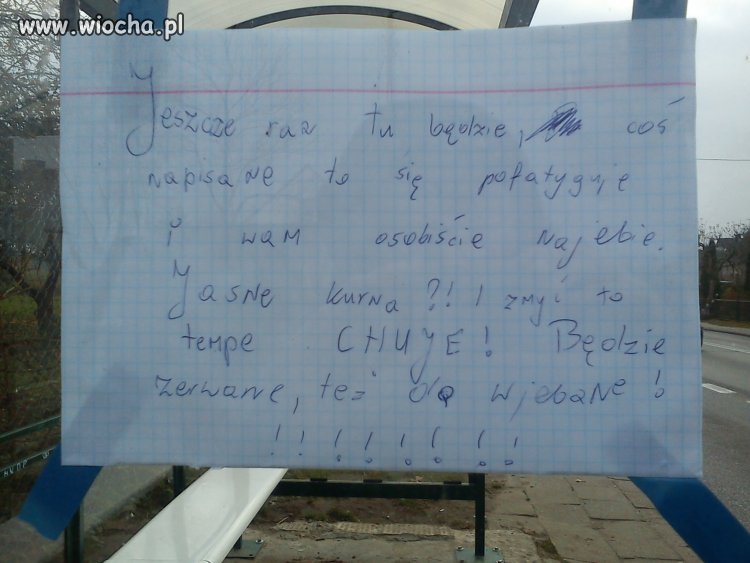 www.wiocha.pl
Jeszcze raz tu bądzie, coś
napisane to się pofatyguję
i wam osobiście najebię.
Jasne kurna?! I zmyć to
tempe CHUJE! Będzie
zerwane, też do wjebane!
!!!!!!!!